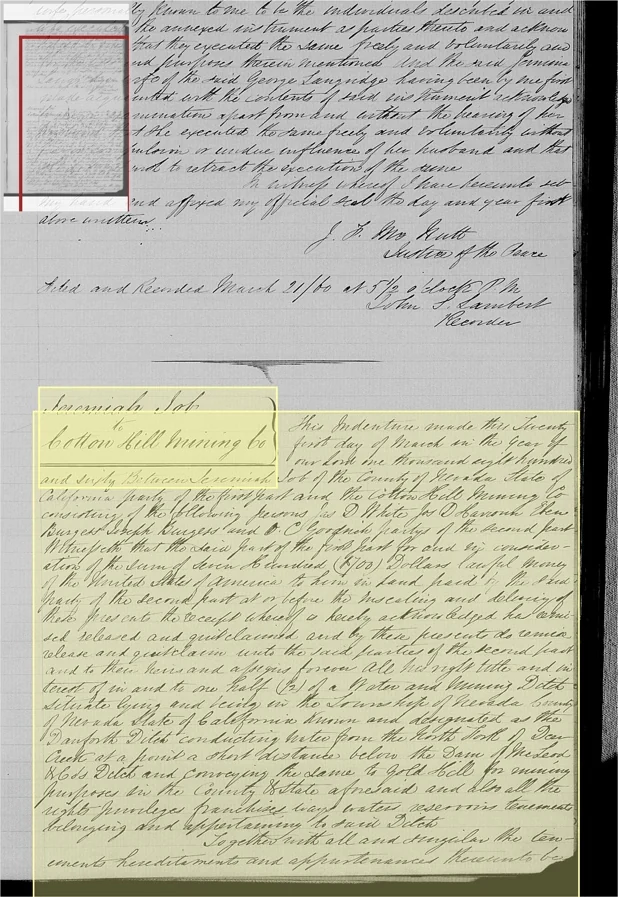 known to me to be the individual described in and
the annexed instrument as parties thereto and acknow
that they executed the same freely and voluntarily and
nd purposes therein mentioned And the said Jemima
wife of the said George Langridge having been by me first
ainted with the contents of said instrument acknowledge
mination apart from and without the hearing of her
t she executed the same freely and voluntarily without
pulsion or undue influence of her husband and that
wish to retract the execution of the same
In witness whereof I have hereunto set
my hand and affixed my official seal the day and year first
above written
J. F.
Justice of the Peace
Filed and Recorded March 21/60 at 5 1/2 o'clock P.M
John S. Lambert
Recorder
Jeremiah Job
to
Cotton Hill Mining Co
This Indenture made this Twenty
first day of March in the year of
our Lord one thousand eight hundred
and sixty Between Jeremiah Job of the County of Nevada State of
California party of the first part and the Cotton Hill Mining Co
consisting of the following persons Jas D White Jas D
Burgess Joseph Burgess and C party of the second part
Witnesseth that the said part of the first part for and in consider-
ation of the sum of Seven Hundred (700) Dollars lawful money
of the United States of America to him in hand paid by the said
party of the second part at or before the ensealing and delivery of
these presents the receipt whereof is hereby acknowledged has remi-
sed released and quitclaimed and by these presents do remise
release and quitclaim unto the said parties of the second part
and to their heirs and assigns forever All his right title and in
terest of in and to one half (1/2) of a Water and Mining Ditch
situate lying and being in the Township of Nevada County
of Nevada State of California known and designated as the
Danforth Ditch conducting water from the North Fork of Deer
Creek at a point a short distance below the Dam of McLeod
& Co's Ditch and conveying the same to Gold Hill for mining
purposes in the County & State aforesaid and also all the
rights privileges franchises ways waters reservoirs tenements
belonging and appertaining to said Ditch
Together with all and singular the ten-
ements hereditaments and appurtenances thereunto be